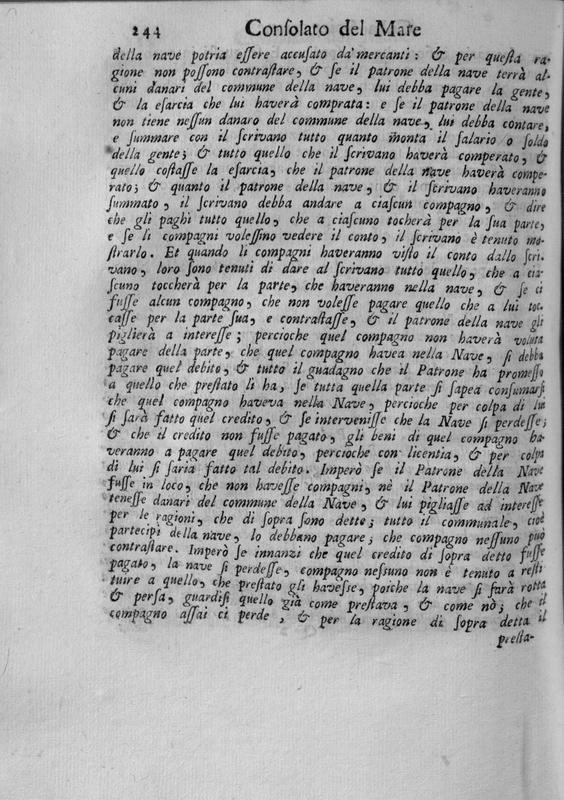 244 Conſolato del Mare
della nave potria eſſere accuſato da' mercanti: & per queſta ra-
gione non poſſono contraſtare, & ſe il patrone della nave terrà al-
cuni danari del commune della nave, lui debba pagare la gente,
& la eſarcia che lui haverà comprata: e ſe il patrone della nave
non tiene neſſun danaro del commune della nave, lui debba contare,
e ſummare con il ſcrivano tutto quanto monta il ſalario o ſoldo
della gente; & tutto quello che il ſcrivano haverà comperato, &
quello coſtaſſe la eſarcia, che il patrone della nave haverà compe-
rato; & quanto il patrone della nave, & il ſcrivano haveranno
ſummato, il ſcrivano debba andare a ciaſcun compagno, & dire
che gli paghi tutto quello, che a ciaſcuno tocherà per la ſua parte,
e ſe li compagni voleſſino vedere il conto, il ſcrivano è tenuto mo-
ſtrarlo. Et quando li compagni haveranno viſto il conto dallo ſcri-
vano, loro ſono tenuti di dare al ſcrivano tutto quello, che a cia-
ſcuno toccherà per la parte, che haveranno nella nave, & ſe ci
fuſſe alcun compagno, che non voleſſe pagare quello che a lui toc-
caſſe per la parte ſua, e contraſtaſſe, & il patrone della nave gli
piglierà a intereſſe; percioche quel compagno non haverà voluta
pagare della parte, che quel compagno havea nella Nave, ſi debba
pagare quel debito, & tutto il guadagno che il Patrone ha promeſſo
a quello che preſtato li ha, ſe tutta quella parte ſi ſapea conſumarſi
che quel compagno haveva nella Nave, percioche per colpa di lui
ſi ſarà fatto quel credito, & ſe interveniſſe che la Nave ſi perdeſſe;
& che il credito non fuſſe pagato, gli beni di quel compagno ha-
veranno a pagare quel debito, percioche con licentia, & per colpa
di lui ſi ſaria fatto tal debito. Imperò ſe il Patrone della Nave
fuſſe in loco, che non haveſſe compagni, nè il Patrone della Nave
teneſſe danari del commune della Nave, & lui pigliaſſe ad intereſſe
per le ragioni, che di ſopra ſono dette; tutto il communale, cioè
partecipi della nave, lo debbano pagare; che compagno neſſuno può
contraſtare. Imperò ſe innanzi che quel credito di ſopra detto fuſſe
pagato, la nave ſi perdeſſe, compagno neſſuno non è tenuto a reſti-
tuire a quello, che preſtato gli haveſſe, poiche la nave ſi ſarà rotta
& perſa, guardiſi quello già come preſtava, & come nò; che il
compagno aſſai ci perde, & per la ragione di ſopra detta il
preſta-